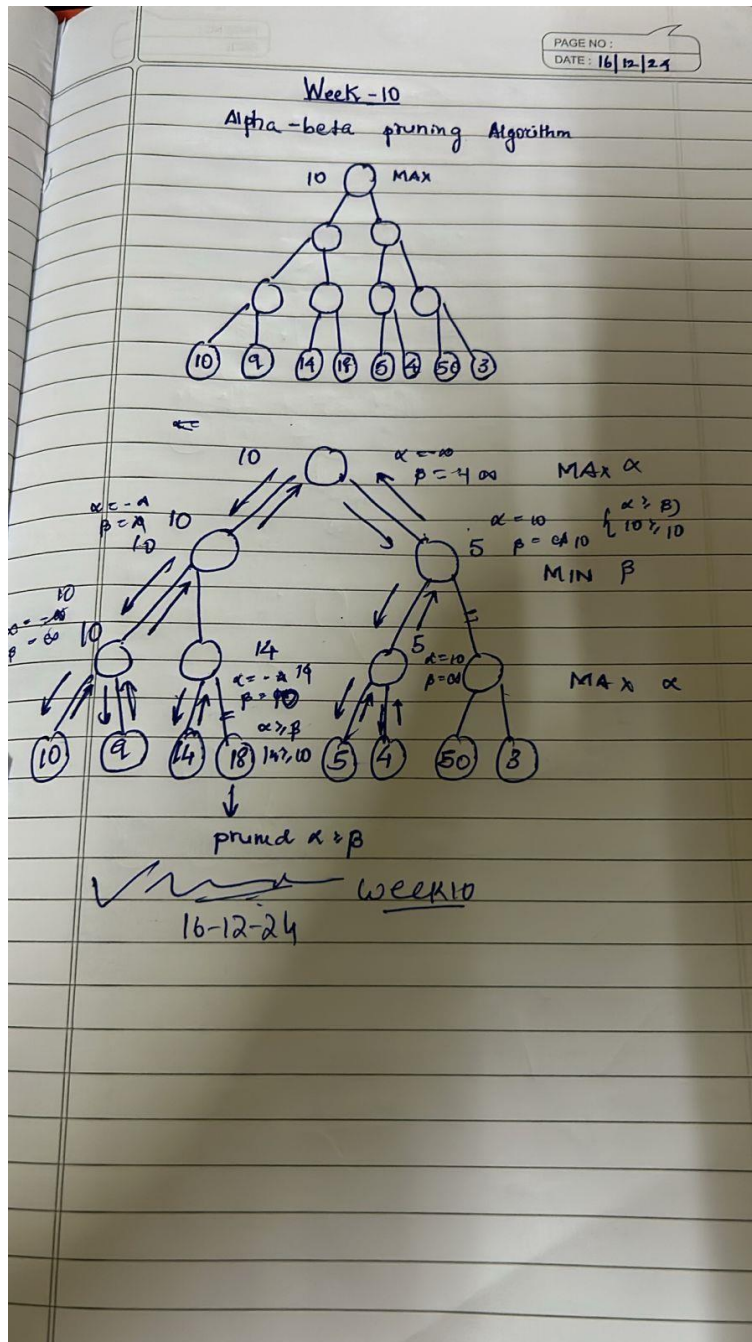 PAGE NO :
DATE : 16/12/24
Week-10
Alpha-beta pruning Algorithm
10 MAX
10 9 14 18 5 4 50 3
10 α = -∞
β = +∞ MAX α
α = -∞
β = 10
10
α = 10
β = 10 { α ≥ β}
10 ≥ 10
5
MIN β
10
10
β = ∞
14
α = 14
β = 10
5
α=10
β=∞
MAX α
10 9 14 18 5 4 50 3
α ≥ β
14 ≥ 10
pruned α ≥ β
Week10
16-12-24